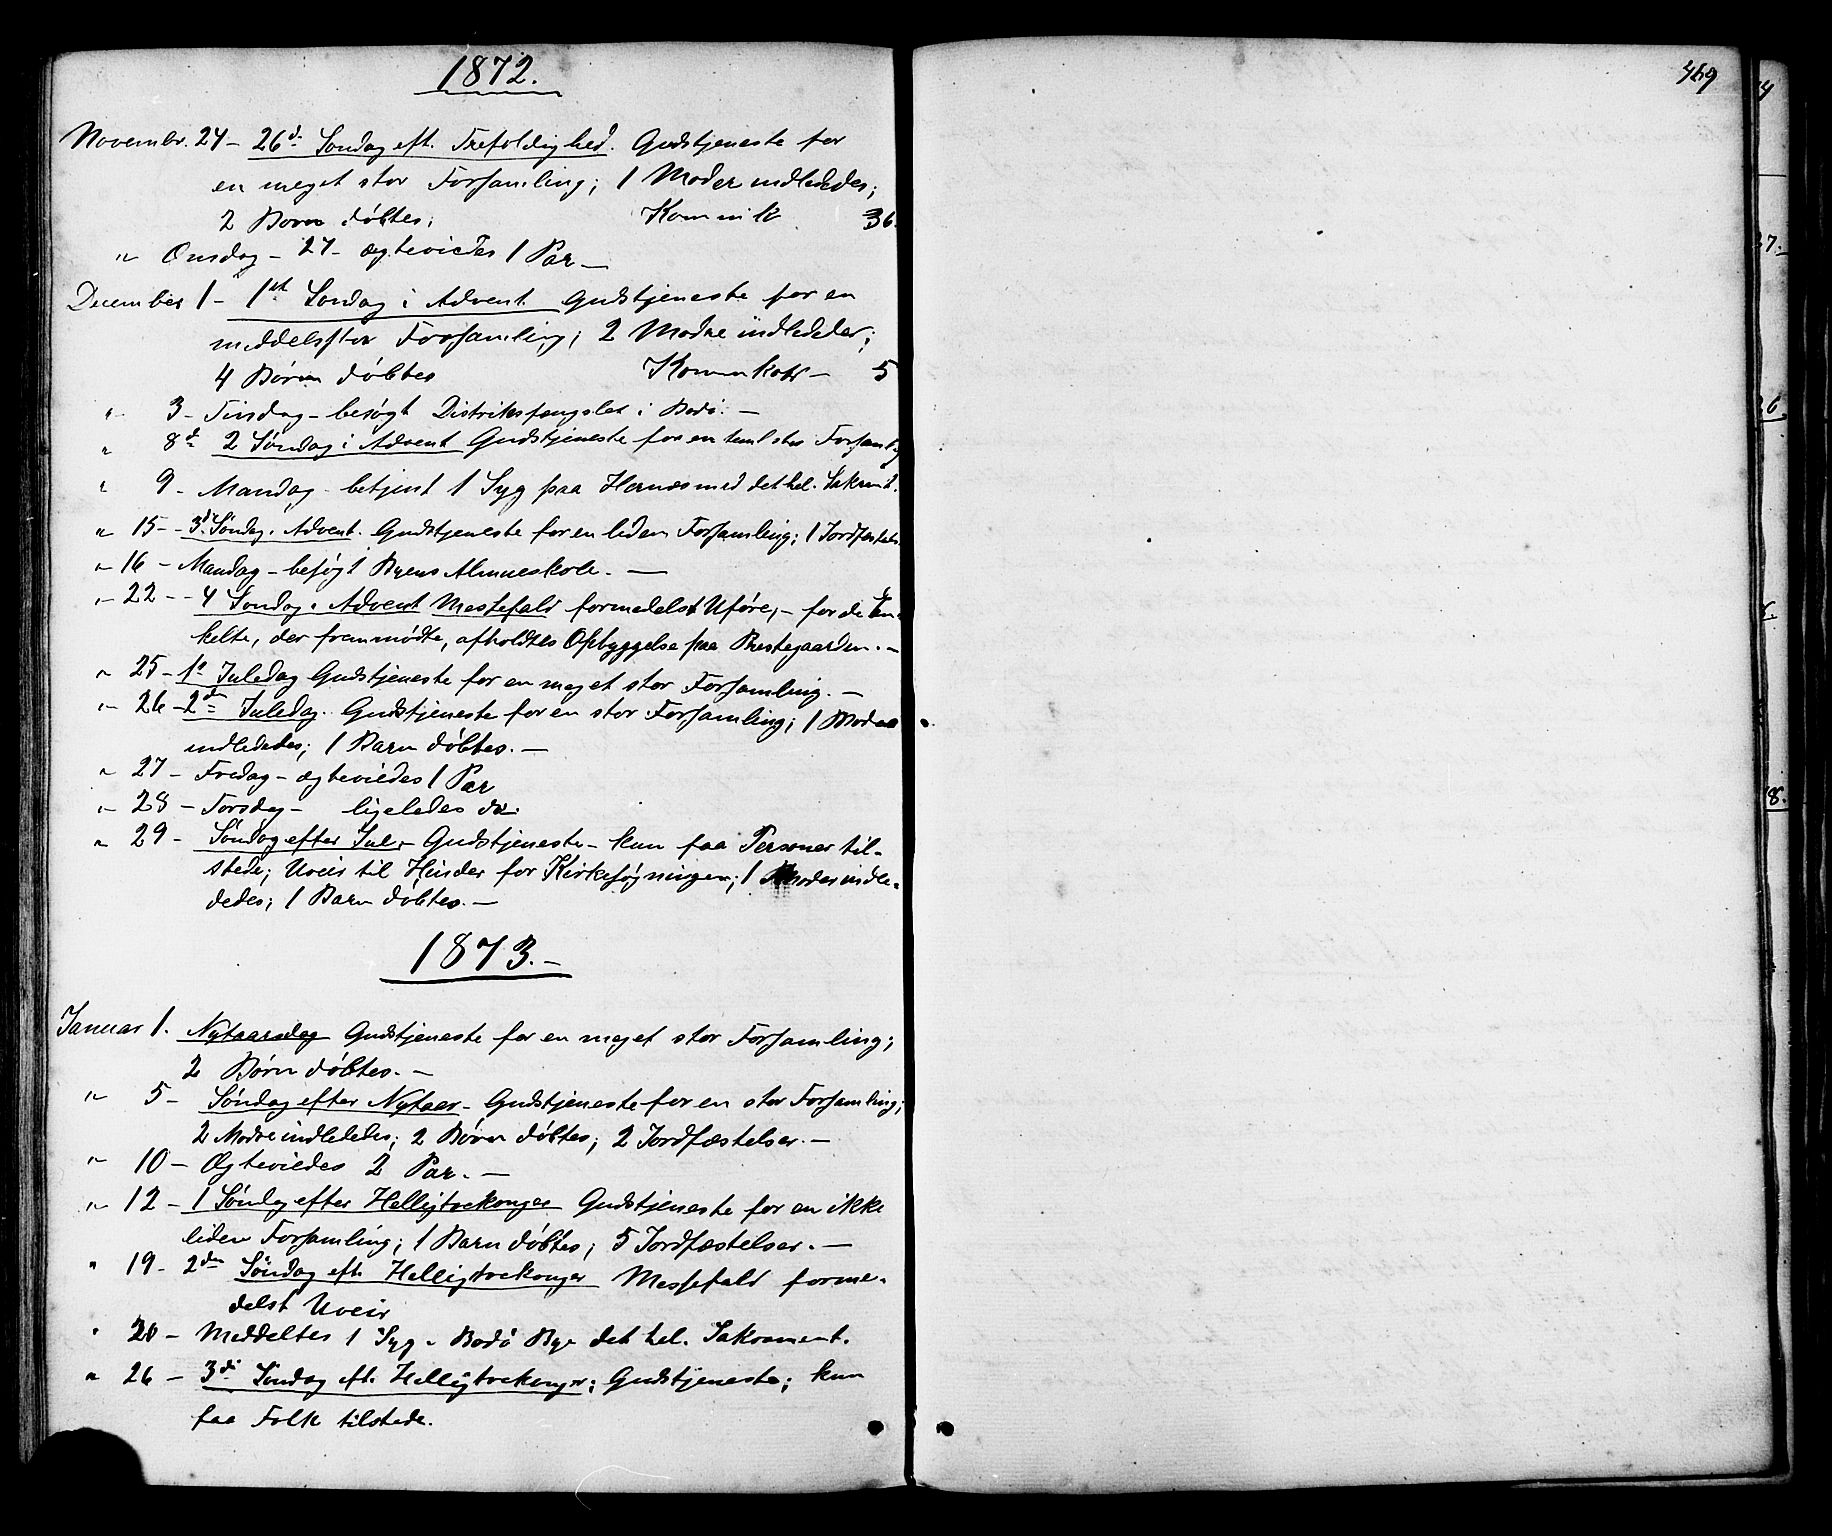 1872.
Novembr. 24 – 26d. Søndag eft. Trefoldighed. Gudstjeneste for
en meget stor Forsamling; 1 Moder indlededes;
2 Børn døbtes; Kommik. 36.
" Onsdag – 27 – ægteviedes 1 Par –
December 1 – 1st Søndag i Advent Gudstjeneste for en
middelsstor Forsamling; 2 Mødre indlededes;
4 Børn døbtes – 5
" 3 – Tirsdag – besøgt Distriksfængslet i Bodø. –
" 8d. 2 Søndag i Advent Gudstjeneste for en teml. stor Forsamlg
" 9 – Mandag – betjent 1 Syg paa Hernæs med det hel. Sakrmt.
" 15 – 3d. Søndag i Advent. Gudstjeneste for en liden Forsamling; 1 Jordfæstels.
" 16 – Mandag – besøgt Byens Almueskole. –
" 22 – 4 Søndag i Advent Messefald formedelst Uføre, – for de En-
kelte, der fremmødte, afholdtes Opbyggelse paa Prestegaarden. –
" 25 – 1e Juledag Gudstjeneste for en meget stor Forsamling. –
" 26 – 2den Juledag. Gudstjeneste for en stor Forsamling; 1 Moder
indlededes; 1 Barn døbtes. –
" 27 – Fredag – ægteviedes 1 Par
" 28 – Torsdag – ligeledes do.
" 29 – Søndag efter Jul – Gudstjeneste – kun faa Personer til-
stede; Uveir til Hinder for Kirkesøgningen; 1 Moder indle-
dedes; 1 Barn døbtes. –
1873. –
Januar 1. Nytaarsdag Gudstjeneste for en meget stor Forsamling;
2 Børn døbtes. –
" 5 – Søndag efter Nytaar – Gudstjeneste for en stor Forsamling;
2 Mødre indlededes; 2 Børn døbtes; 2 Jordfæstelser. –
" 10 – Ægteviedes 2 Par. –
" 12 – 1 Søndag efter Helligtrekonger Gudstjeneste for en ikke
liden Forsamling; 1 Barn døbtes; 5 Jordfæstelser. –
" 19 – 2den Søndag eft. Helligtrekonger Messefald forme-
delst Uveir
" 20 – Meddeltes 1 Syg i Bodø Bye det hel. Sakrament.
" 26 – 3di Søndag eft. Helligtrekonger; Gudstjeneste; kun
faa Folk tilstede.
469
27.
26.
18.